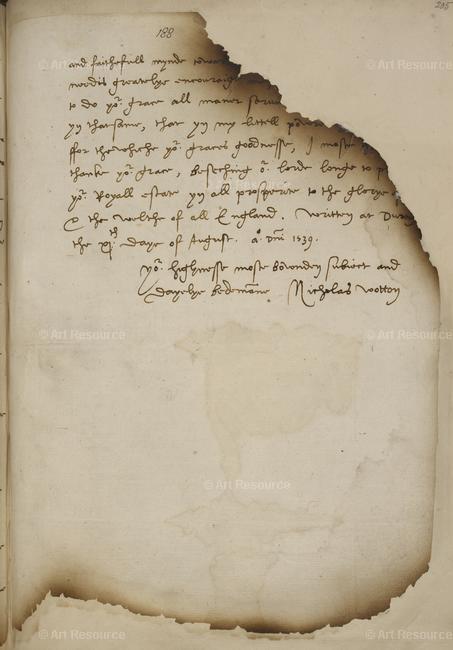 188
205
and faithefull mynde towar
nedis greatelye encourag
to do yor. grace all maner seru
yn that same, that yn my littell po
ffor the whiche yor. graces goodnesse, I moste
thanke yor. grace, beseching or. lorde longe to p
yor. Royall estate yn all prosperite to the glorye
& the welthe of all England. Written at Dure
the xjth daye of August. ao. Dni 1539.
yor. highnesse moste bounden subiect and
dayelye bedemanne Nicholas Wotton
© Art Resource
© Art Resource
© Art Resource
© Art Resource
© Art Resource
© Art Resource
© Art Resource